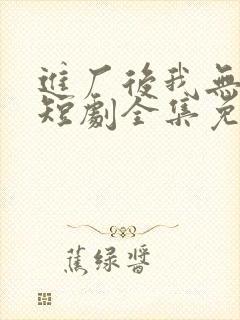 進厂後我無
短劇全集免
蕉绿醬